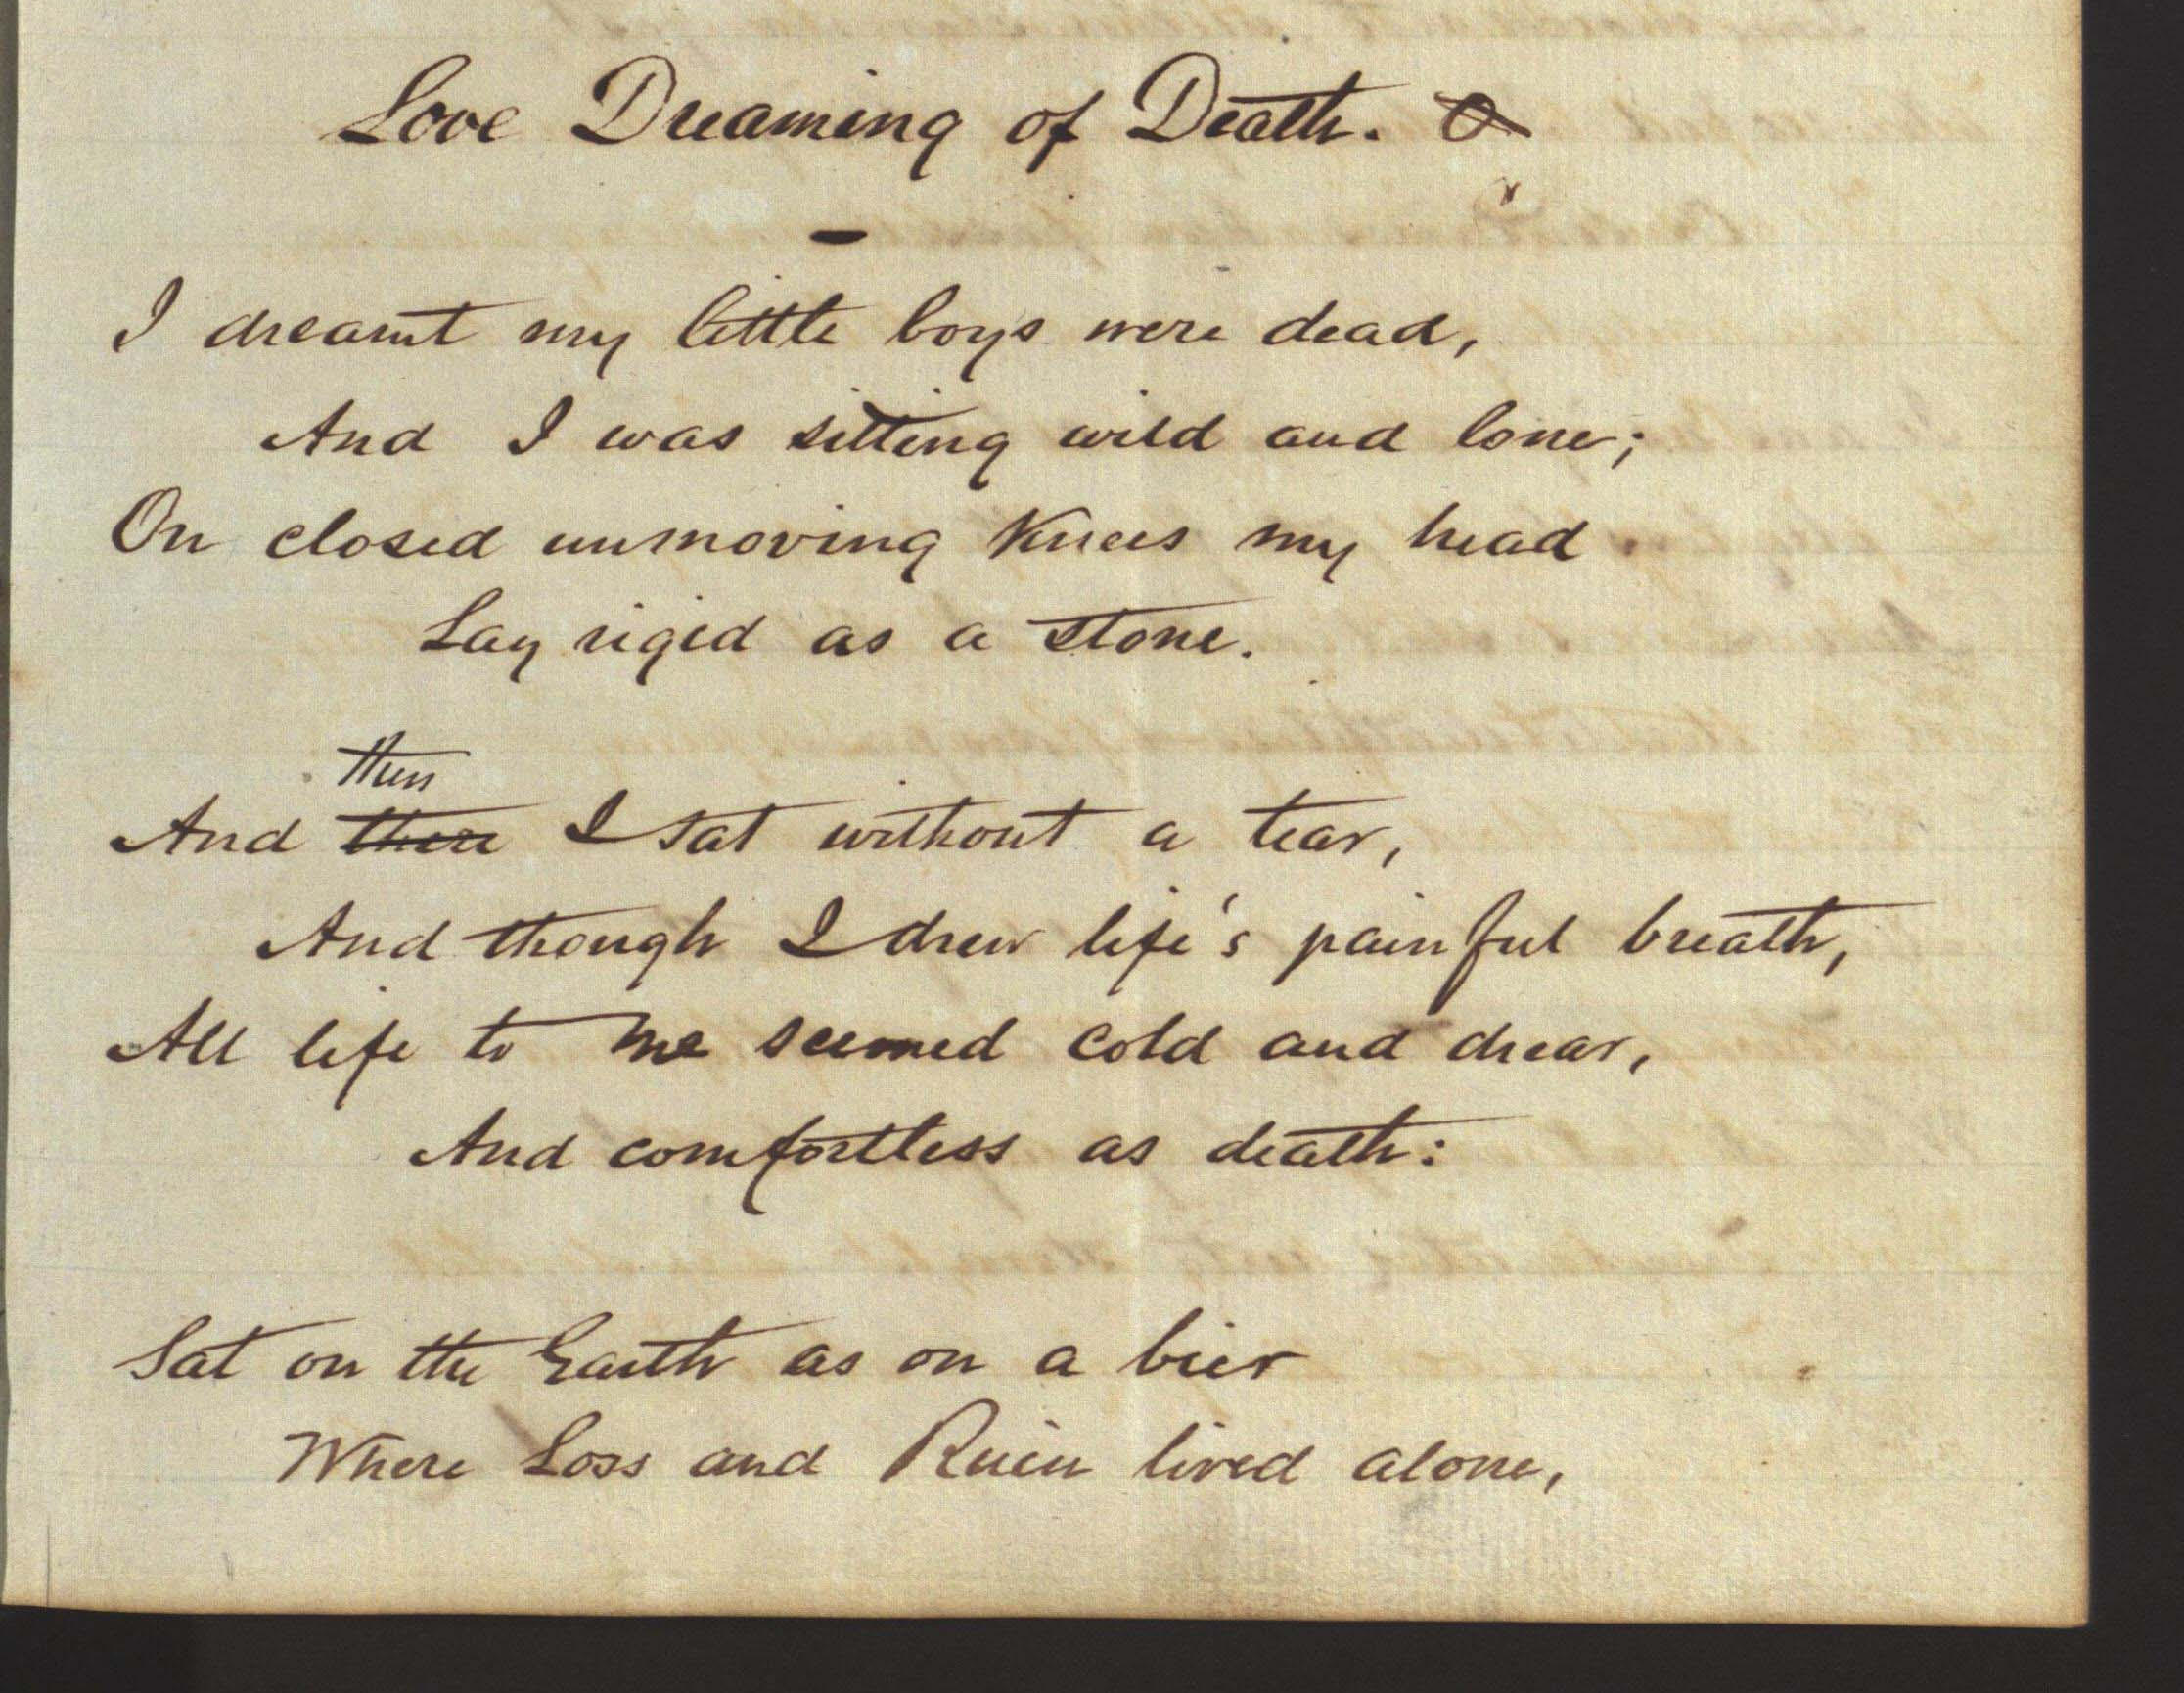 Love Dreaming of Death.
I dreamt my little boys were dead,
And I was sitting wild and lone;
On closed unmoving knees my head
Lay rigid as a stone.
then
And there I sat without a tear,
And though I drew life's painful breath,
All life to me seemed cold and drear,
And comfortless as death:
Sat on the Earth as on a bier
Where Loss and Ruin lived alone,